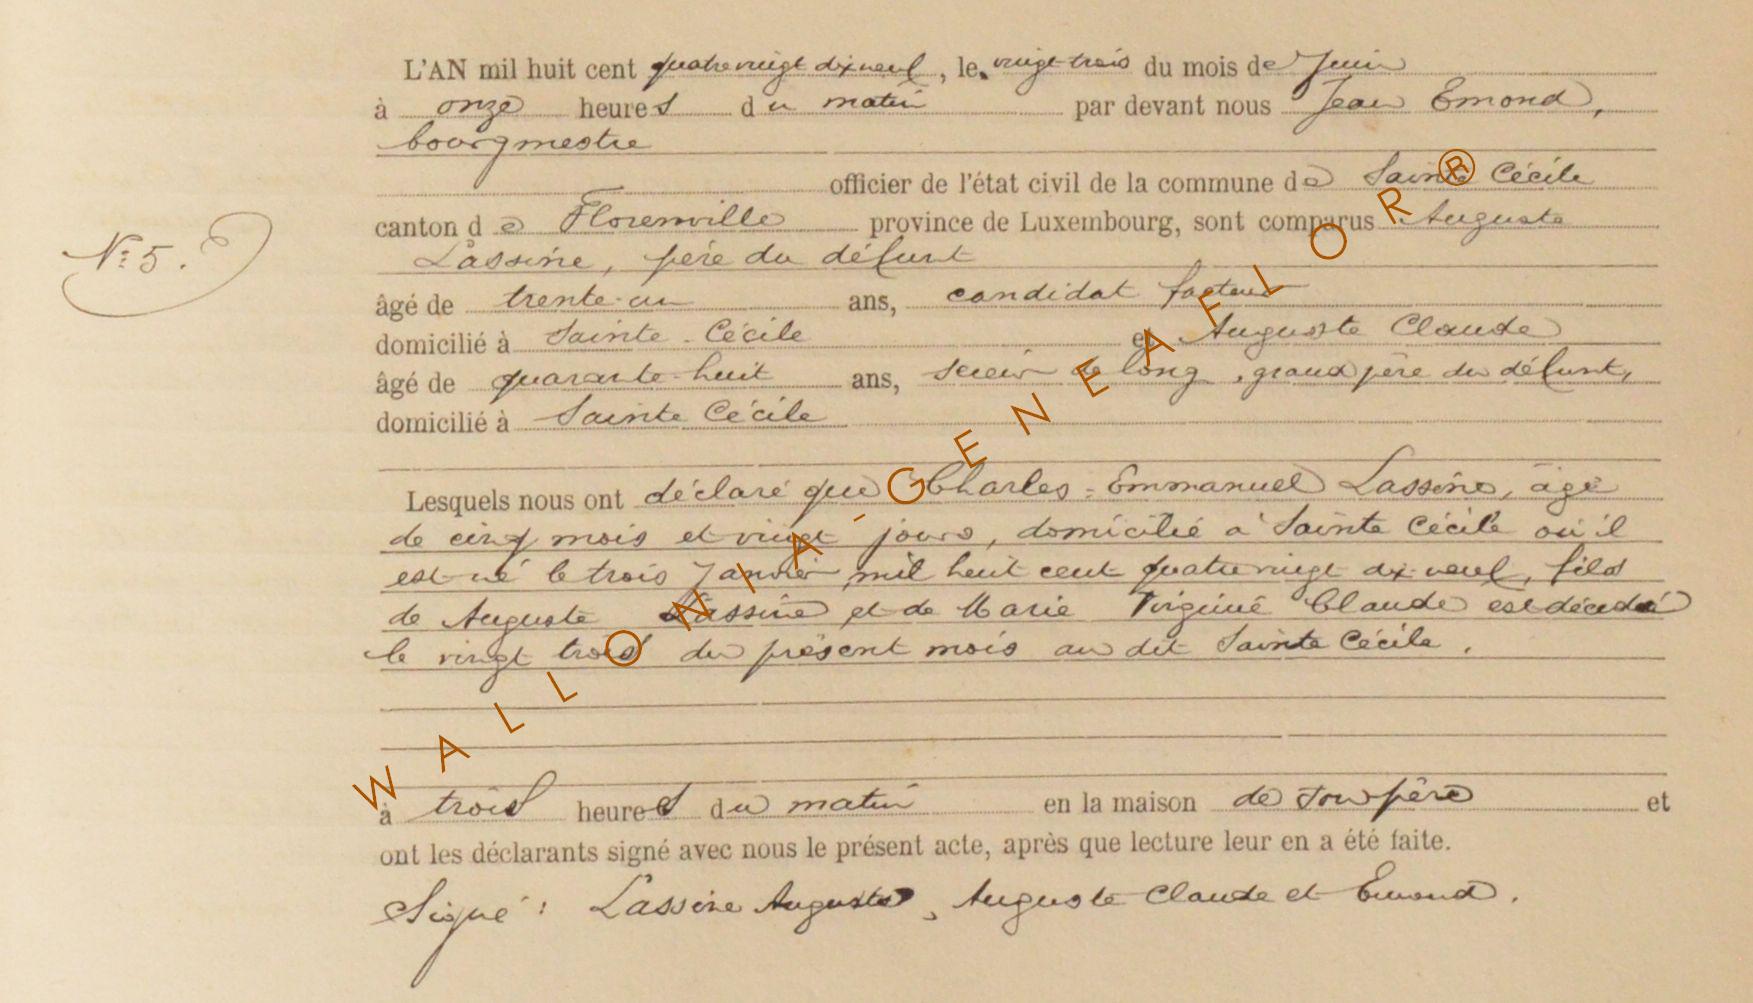 L'AN mil huit cent quatre vingt dix neuf, le vingt-trois du mois de Juin
à onze heures du matin par devant nous Jean Emond,
bourgmestre
officier de l'état civil de la commune de Sainte Cécile
canton de Florenville province de Luxembourg, sont comparus Auguste
N° 5.
Lassine, père du défunt
âgé de trente-un ans, candidat facteur
domicilié à Sainte-Cécile et Auguste Claude
âgé de quarante-huit ans, scieur de long, grand père du défunt,
domicilié à Sainte Cécile
Lesquels nous ont déclaré que Charles-Emmanuel Lassine, âgé
de cinq mois et vingt jours, domicilié à Sainte Cécile où il
est né le trois Janvier mil huit cent quatre vingt dix neuf, fils
de Auguste Lassine et de Marie Virginie Claude est décédé
le vingt trois du présent mois au dit Sainte Cécile.
à trois heures du matin en la maison de son père et
ont les déclarants signé avec nous le présent acte, après que lecture leur en a été faite.
Signé : Lassine Auguste, Auguste Claude et Emond.
WALLONIA-GENEAFLOR®